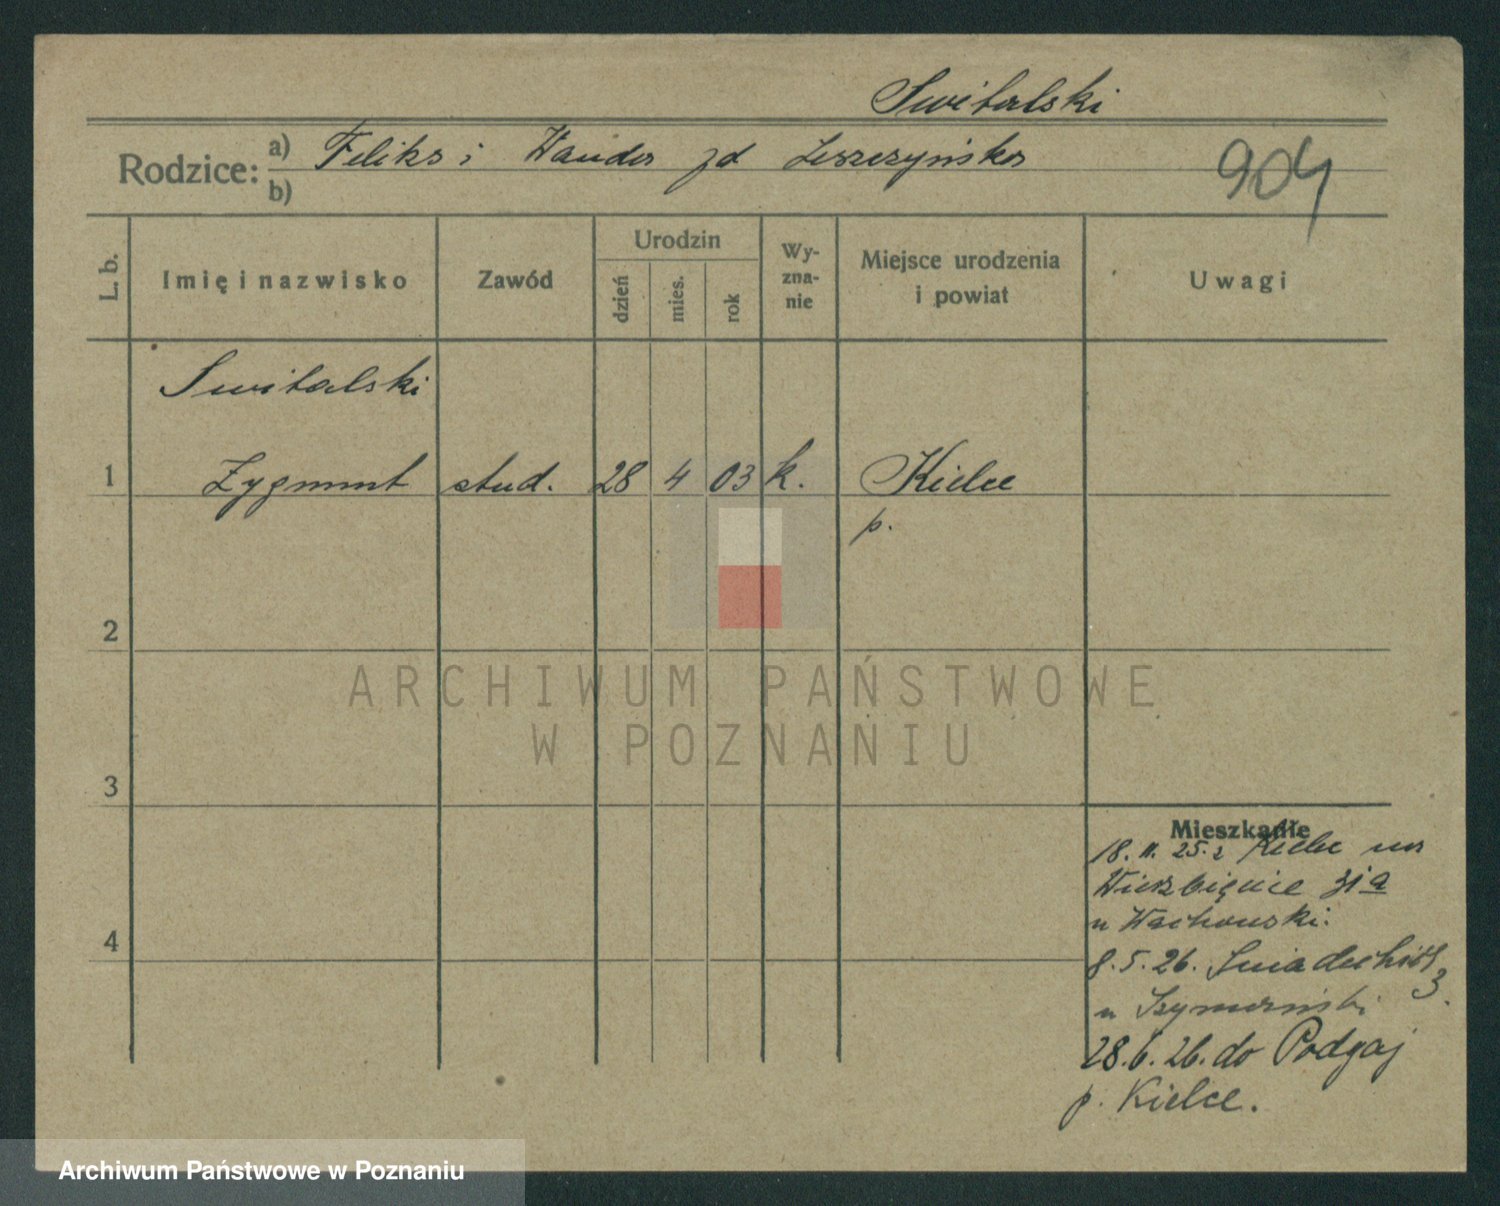 Switalski
Rodzice: a) Feliks i Wanda zd Leszczyńska
b)
904
L. b.
Imię i nazwisko
Zawód
Urodzin
dzień
mies.
rok
Wy-
zna-
nie
Miejsce urodzenia
i powiat
Uwagi
Switalski
1 Zygmunt stud. 28 4 03 k. Kielce
p.
2
3
4
Mieszkanie
18. 11. 25. z Kielc na
Wierzbięcice
u Wachowski.
8. 5. 26. Śniadeckich
3.
u Szymański
28. 6. 26. do Podgaj
p. Kielce.
ARCHIWUM PAŃSTWOWE
W POZNANIU
Archiwum Państwowe w Poznaniu